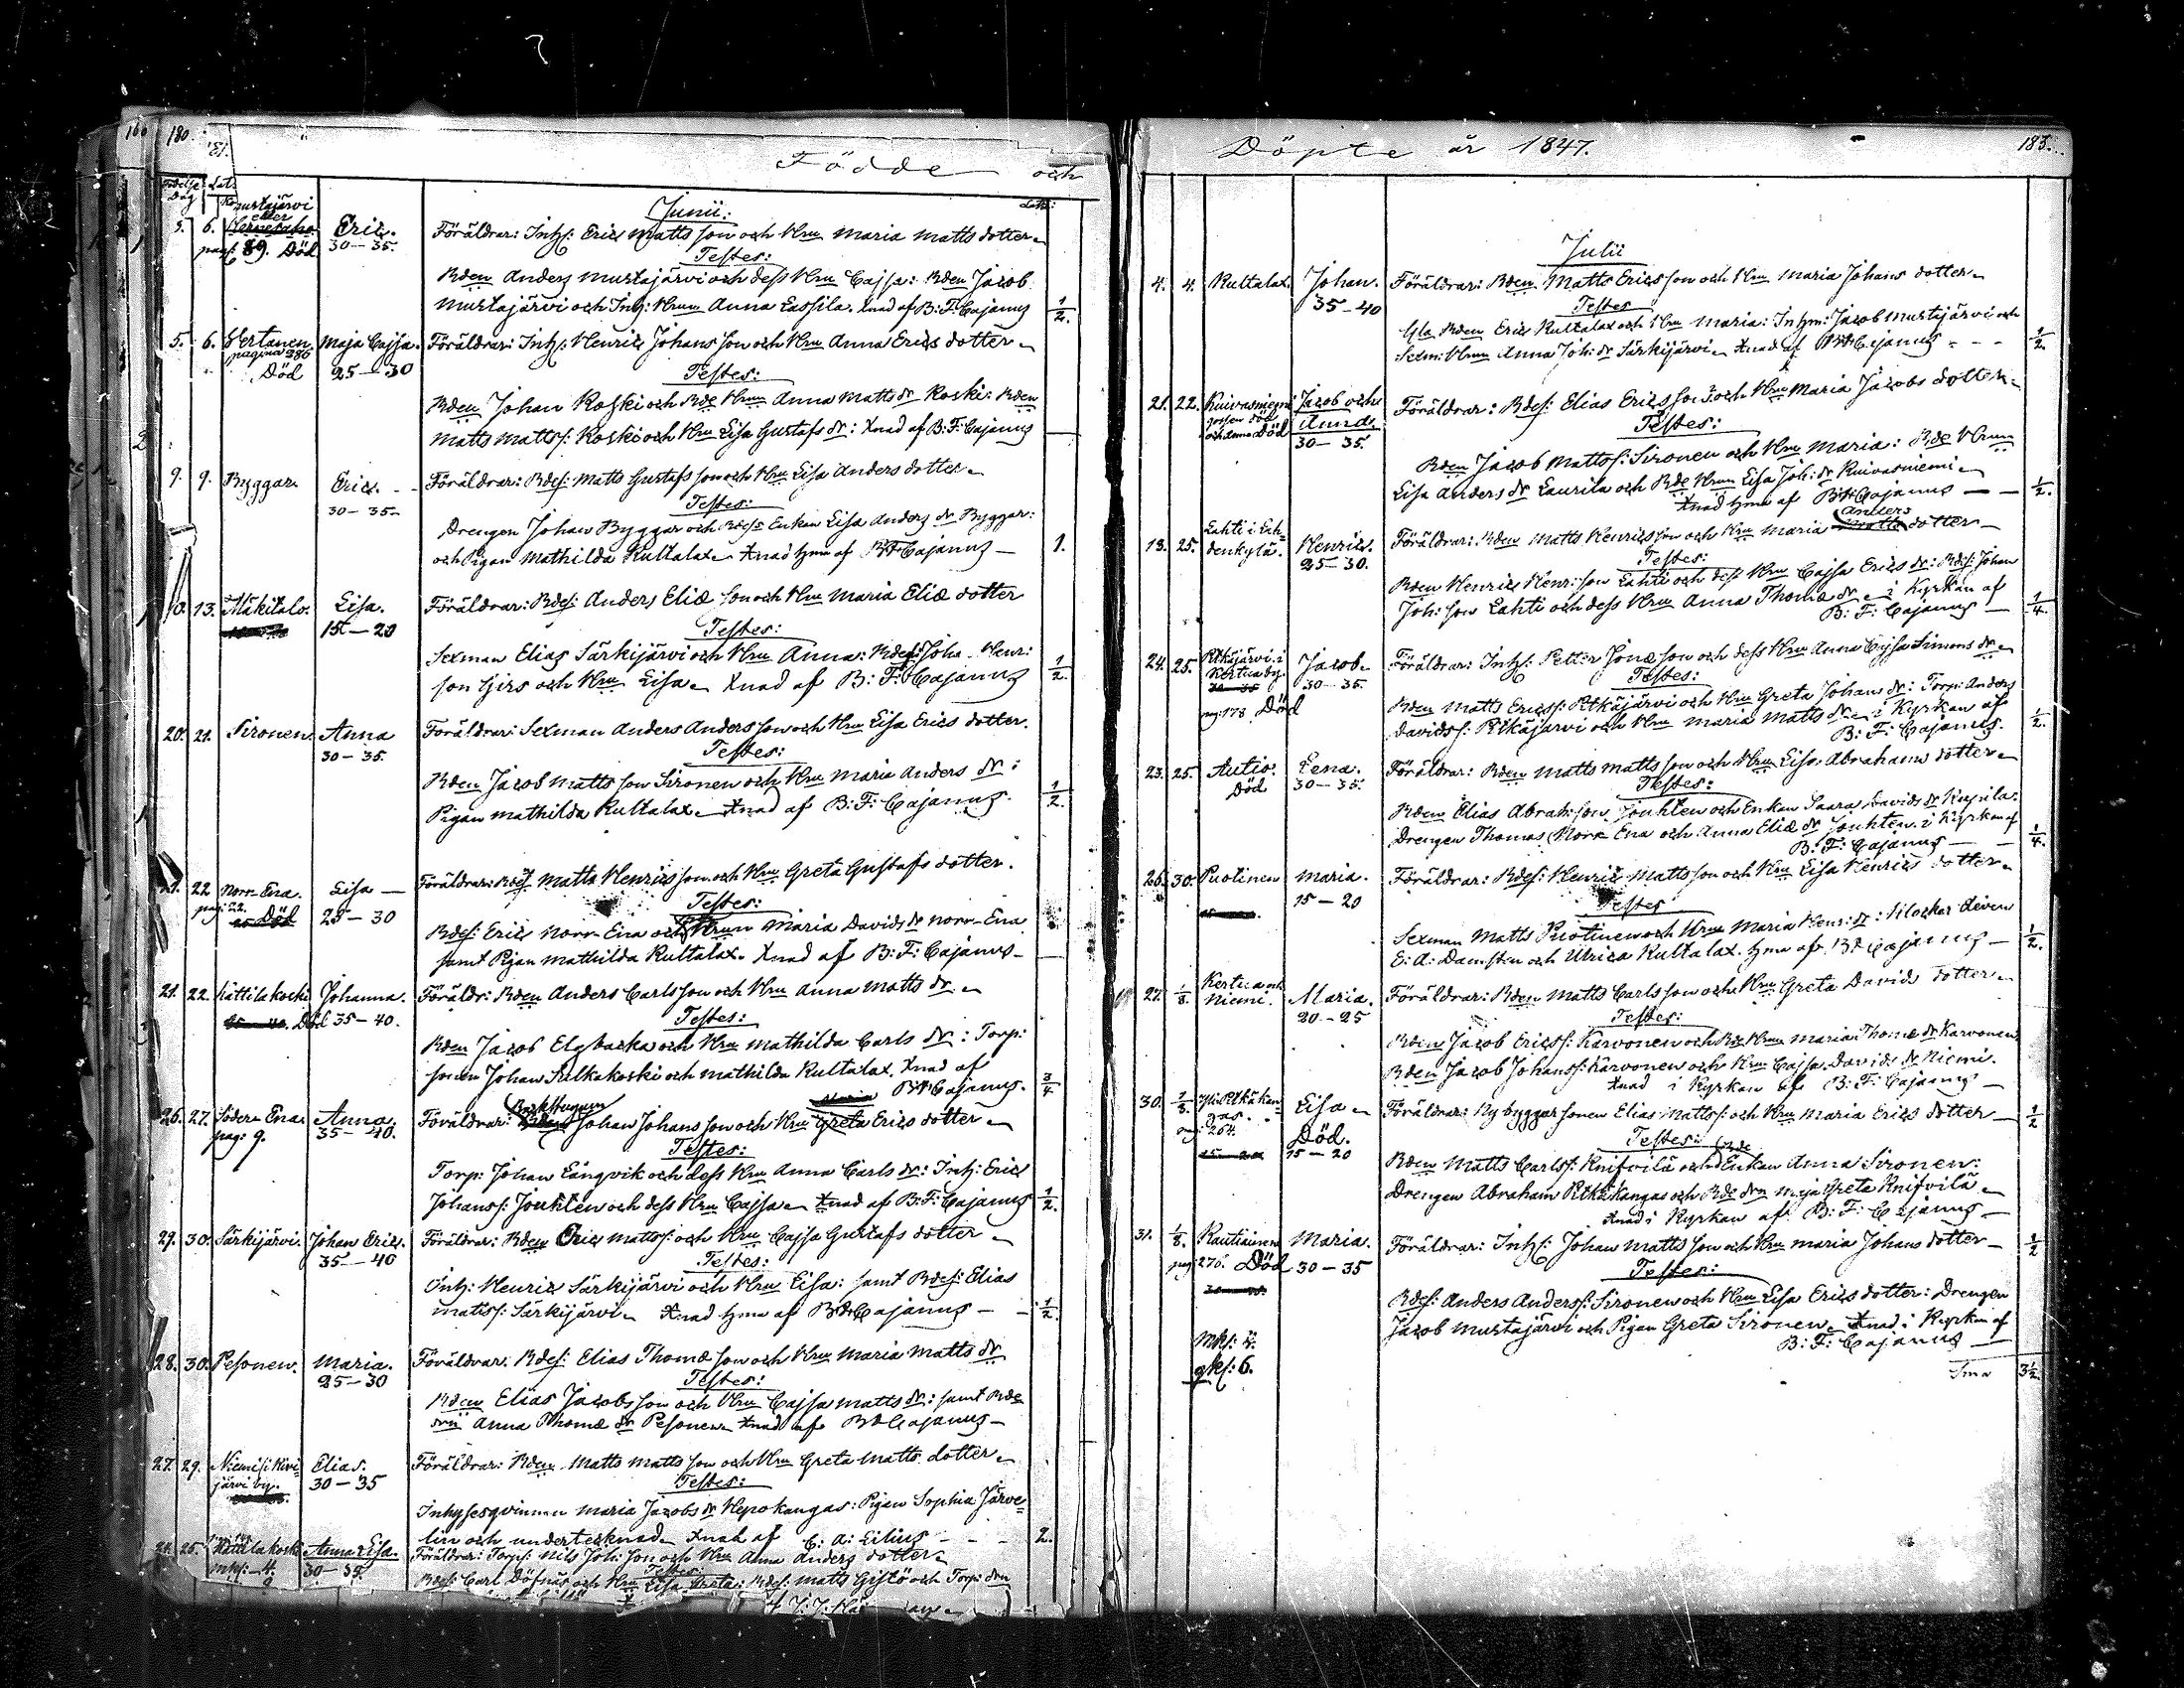 180.
Födde och
Junii:
5. 6. Mustajärvi eller Eric. Föräldrar: Inhs: Erics Matts son och Hru Maria Matts dotter
pag: 89. Död 30-35. Testes:
Bden Anders Mustajärvi och dess Hru Cajsa: Bden Jacob
Mustajärvi och Inh: Hrun Anna Lassila. Xnad af B: F: Cajanus 1/2.
5. 6. Hertanen Maja Cajsa. Föräldrar: Inhs: Henrics Johans son och Hru Anna Erics dotter
pagina 286 Död 25-30 Testes:
Bden Johan Koski och Bde Hrun Anna Matts dr Koski: Bden
Matts Mattss: Koski och Hru Lisa Gustafs dr: Xnad af B: F: Cajanus
9. 9. Byggar. Eric. Föräldrar: Bdes: Matts Gustafs son och Hru Lisa Anders dotter
30-35 Testes:
Drengen Johan Byggar och Bdes Enkan Lisa Anders dr Byggar:
och Pigan Mathilda Kultalax Xnad hma af B F Cajanus 1.
10. 13. Mäkitalo. Lisa. Föräldrar: Bdes: Anders Eliæ son och Hru Maria Eliæ dotter
15-20 Testes:
Sexman Elias Särkijärvi och Hru Anna: Bdes: Joha. Henr:
son Girs och Hru Lisa Xnad af B: F: Cajanus 1/2.
20. 21. Sironen Anna Föräldrar: Sexman Anders Anders son och Hru Lisa Erics dotter.
30-35. Testes:
Bden Jacob Matts son Sironen och Hru Maria Anders dr:
Pigan Mathilda Kultalax Xnad af B: F: Cajanus. 1/2.
21. 22 Norr-Ena. Lisa Föräldrar: Bdes Matts Henrics son och Hru Greta Gustafs dotter.
pag: 22. Död 25-30 Testes:
Bdes: Erics Norr-Ena och Hrun Maria Davids dr Norr-Ena
samt Pigan Mathilda Kultalax. Xnad af B: F: Cajanus
21. 22. Kättilakoski Johanna. Föräldr: Bden Anders Carls son och Hru Anna Matts dr
Död 35-40. Testes:
Bden Jacob Elgbacka och Hru Mathilda Carls dr: Torp:
sonen Johan Sulkakoski och Mathilda Kultalax. Xnad af
B F Cajanus. 3/4
26. 27. Söder-Ena. Anna. Föräldrar: Johan Johans son och Hru Greta Erics dotter
pag: 9. 35-40. Testes:
Torp: Johan Längvik och dess Hru Anna Carls dr: Inh: Erics
Johanss: Jouhten och dess Hru Cajsa Xnad af B: F: Cajanus 1/2.
29. 30. Särkijärvi. Johan Eric. Föräldrar: Bden Erics Mattss: och Hru Cajsa Gustafs dotter
35-40 Testes:
Inh: Henrics Särkijärvi och Hru Lisa: samt Bdes: Elias
Mattss: Särkijärvi Xnad hma af B F Cajanus 1/2.
28. 30. Pesonen. Maria. Föräldrar: Bdes: Elias Thomæ son och Hru Maria Matts dr
25-30 Testes:
Bden Elias Jacobs son och Hru Cajsa Matts dr: samt Bde
drn Anna Thomæ dr Pesonen Xnad af B F Cajanus
27. 29. Niemi i Kivi-järvi by. Elias. Föräldrar: Bden Matts Matts son och Hru Greta Matts dotter
30-35 Testes:
Inhysesqvinnan Maria Jacobs dr Hepokangas: Pigan Sophia Järve-
lin och undertecknad Xnad af C: A: Lilius 2.
25. Kättilakoski Anna Lisa. Föräldrar: Torps: Nils Joh: son och Hru Anna Anders dotter
mks: 4. 30-35. Testes:
Bdes: Carl Döfnäs och Hru Lisa Greta: Bdes: Matts Gistö och Torp: drn
Döpte år 1847. 183.
Julii
4. 4. Kultalax. Johan. Föräldrar: Bden Matts Erics son och Hru Maria Johans dotter
35-40 Testes
Gla Bden Erics Kultalax och Hru Maria: Inhm: Jacob Mustajärvi och
Sexm: Hrun Anna Joh: dr Särkijärvi Xnad af B F Cajanus 1/2.
21. 22. Kuivasniemi Jacob och Anna. Föräldrar: Bdes: Elias Erics son och Hru Maria Jacobs dotter
och Anna Död 30-35. Testes:
Bden Jacob Mattss: Sironen och Hru Maria: Bde Hrun
Lisa Anders dr Laurila och Bde Hrun Lisa Joh: dr Kuivasniemi
Xnad hma af B F Cajanus 1/2.
13. 25. Lahti i Lah-denkylä. Henrics. Föräldrar: Bden Matts Henrics son och Hru Maria Anders dotter
25-30. Testes:
Bden Henrics Henr: son Lahti och dess Hru Cajsa Erics dr: Bdes: Johan
Joh: son Lahti och dess Hru Anna Thomæ dr i Kyrkan af
B: F: Cajanus 1/4.
24. 25. Pitkäjärvi i Kertua by. Jacob Föräldrar: Inhs: Petter Jonæ son och dess Hru Anna Cajsa Simons dr
pag: 178 Död 30-35. Testes:
Bden Matts Ericss: Pitkäjärvi och Hru Greta Johans dr: Torp: Anders
Davidss: Pitkäjärvi och Hru Maria Matts dr i Kyrkan af
B: F: Cajanus. 1/2.
23. 25. Autio. Lena. Föräldrar: Bden Matts Matts son och Hru Lisa Abrahams dotter
Död 30-35. Testes:
Bden Elias Abrah: son Jouhten och Enkan Saara Davids dr
Drengen Thomas Norr-Ena och Anna Eliæ dr Jouhten. i Kyrkan af
B: F: Cajanus 1/4.
26. 30. Puotinen Maria. Föräldrar: Bdes: Henrics Matts son och Hru Lisa Henrics dotter
15-20 Testes
Sexman Matts Puotinen och Hru Maria Henr: dr: Klockar eleven
E: A: Damsten och Ulrica Kultalax. hma af B F Cajanus 1/2.
27. 1/8. Kertua och Niemi. Maria. Föräldrar: Bden Matts Carls son och Hru Greta Davids dotter
20-25 Testes:
Bden Jacob Ericss: Karvonen och Bde Hrun Maria Thomæ dr Karvonen
Bden Jacob Johanss: Karvonen och Hru Cajsa Davids dr Niemi.
Xnad i Kyrkan af B: F: Cajanus
30. 1/8. Pitkäkan-gas. Lisa Föräldrar: Nybyggar sonen Elias Mattss: och Hru Maria Erics dotter 1/2
pag: 264. Död. 15-20 Testes:
Bden Matts Carlss: Knifvilä och Enkan Anna Sironen:
Drengen Abraham Pitkäkangas och Bde drn Maja Greta Knifvilä
Xnad i Kyrkan af B: F: Cajanus
31. 1/8. Rautiainen Maria. Föräldrar: Inhs: Johan Matts son och Hru Maria Johans dotter 1/2
pag: 276. Död 30-35 Testes:
Bdes: Anders Anderss: Sironen och Hru Lisa Erics dotter: Drengen
Jacob Mustajärvi och Pigan Greta Sironen Xnad i Kyrkan af
B: F: Cajanus
mks: 4.
qks: 6.
Sma 3 1/2.